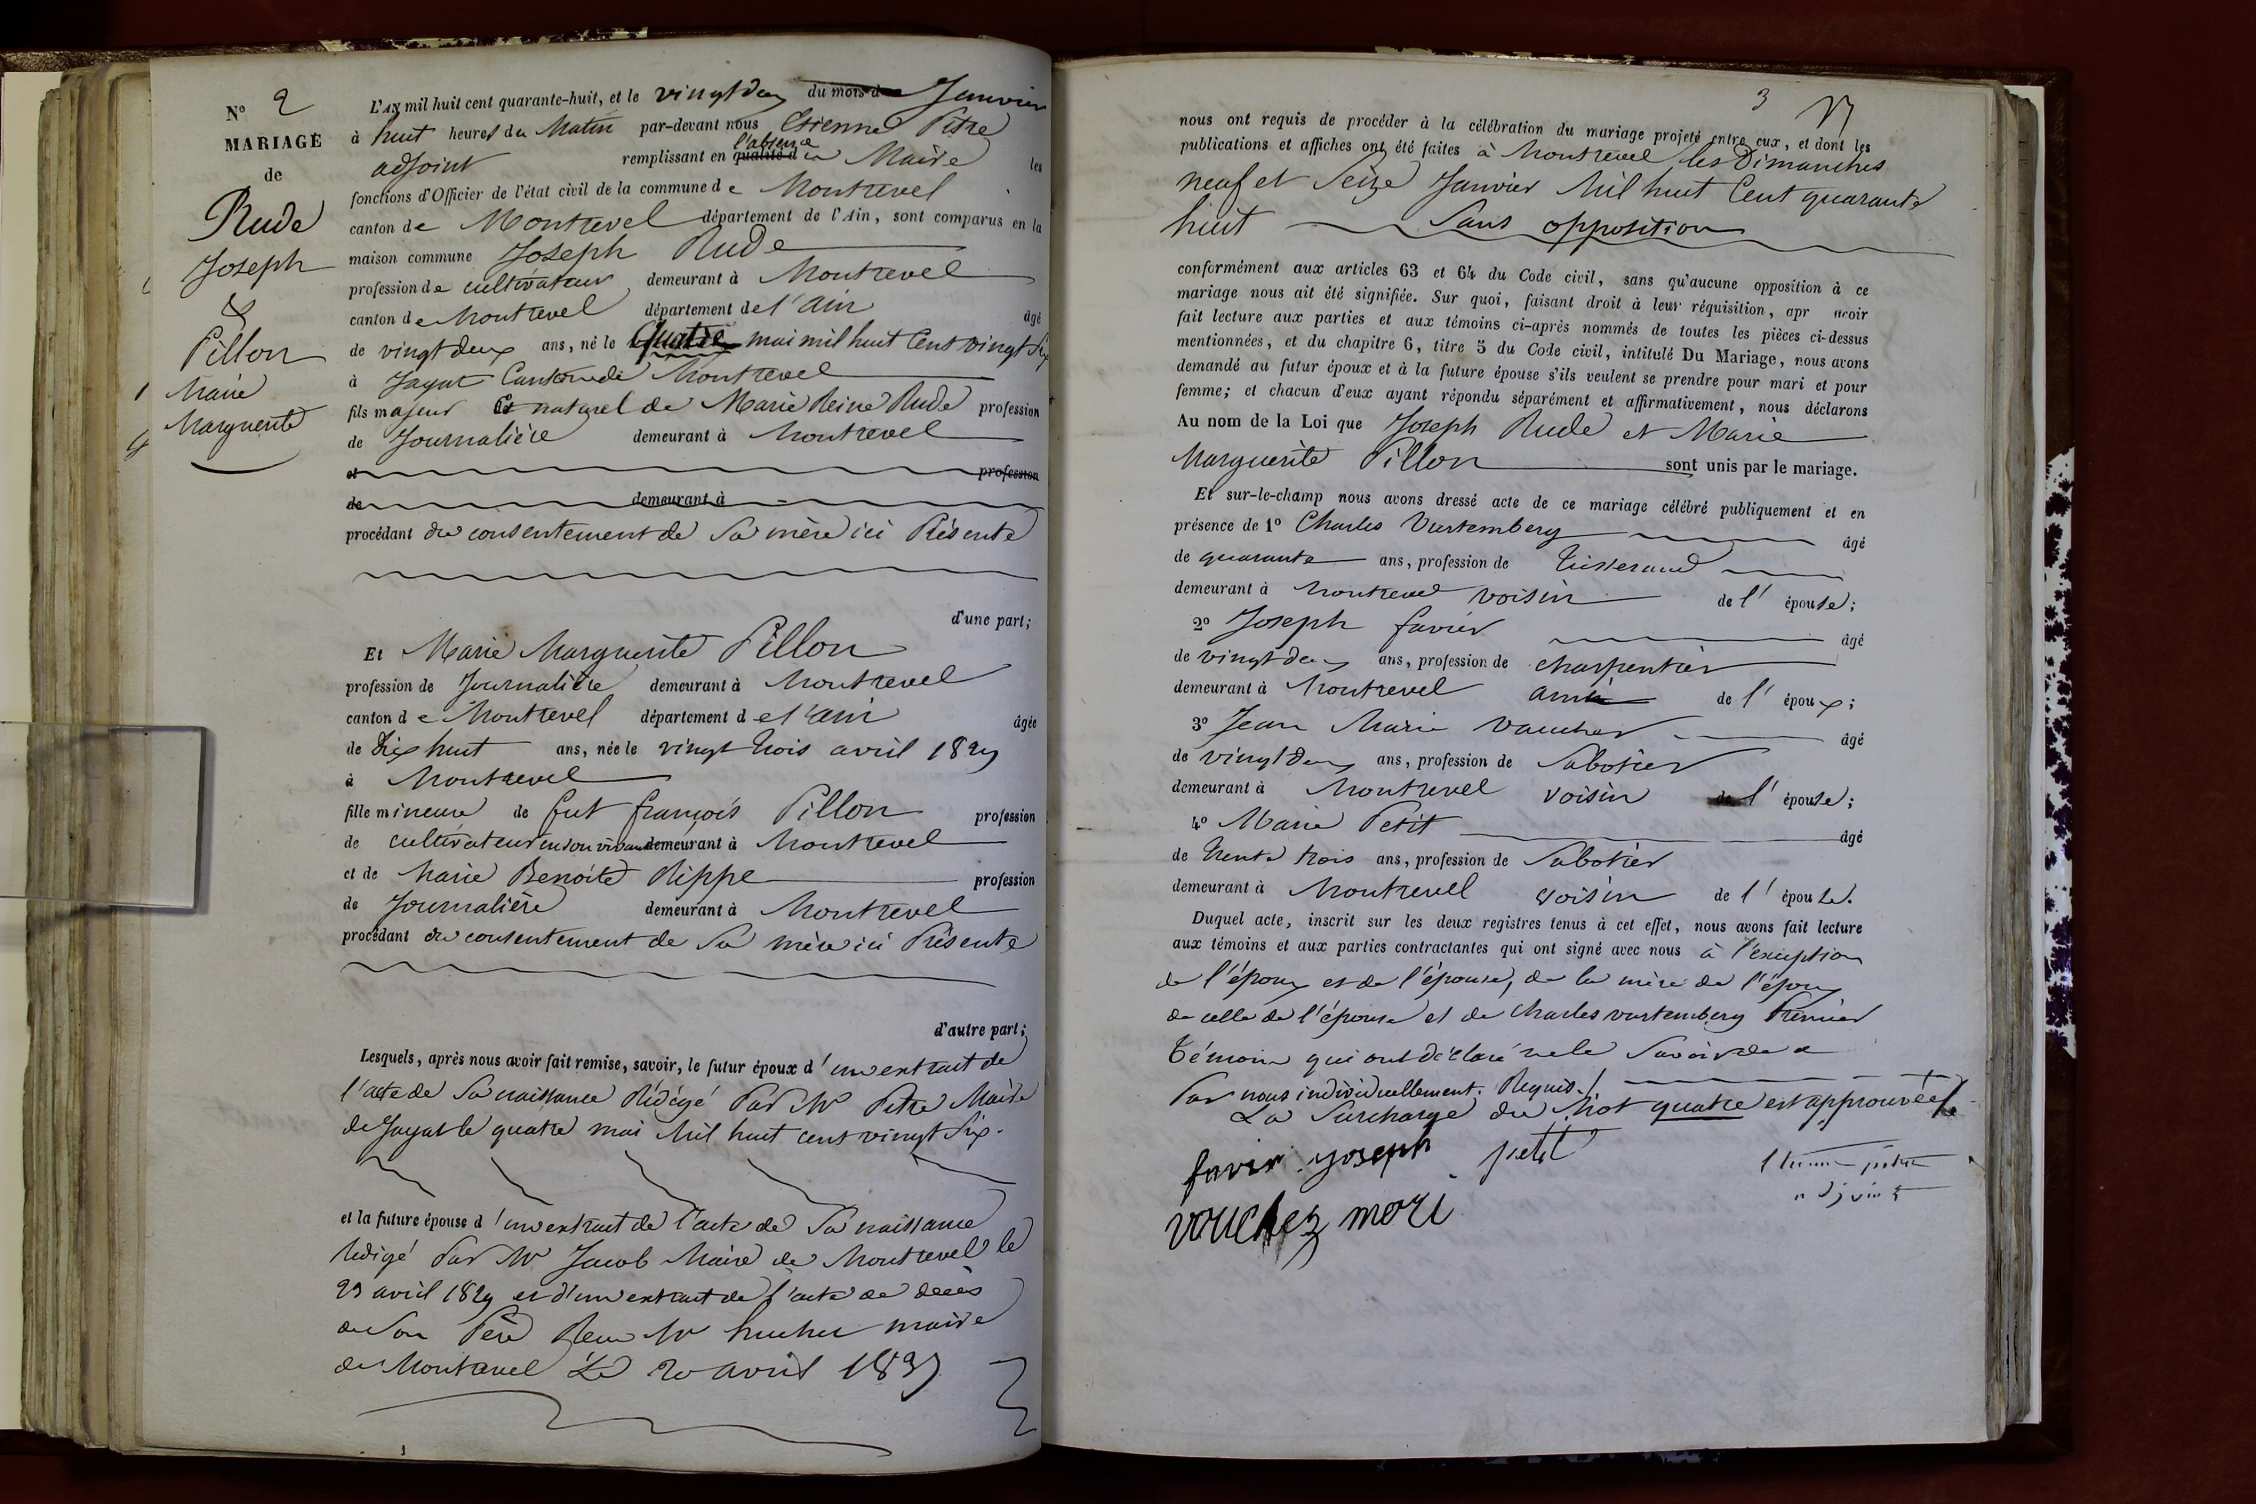 N° 2
MARIAGE
de
Rude
Joseph
&
Pillon
Marie
Marguerite
L'AN mil huit cent quarante-huit, et le vingt deux du mois d Janvier
à huit heures du Matin par-devant nous Etienne Pitre
adjoint remplissant en l'absence qualité du Maire les
fonctions d'Officier de l'état civil de la commune de Montrevel
canton de Montrevel département de l'Ain, sont comparus en la
maison commune Joseph Rude
profession de cultivateur demeurant à Montrevel
canton de Montrevel département de l'ain âgé
de vingt deux ans, né le quatre mai mil huit Cent vingt Six
à Jayat Canton de Montrevel
fils majeur et naturel de Marie Reine Rude profession
de Journalière demeurant à Montrevel
et profession
de demeurant à
procédant du consentement de Sa mère ici Présente
d'une part;
Et Marie Marguerite Pillon
profession de Journalière demeurant à Montrevel
canton de Montrevel département de l'ain âgée
de Dix huit ans, née le vingt trois avril 1829
à Montrevel
fille mineure de feut françois Pillon profession
de cultivateur en son vivant demeurant à Montrevel
et de Marie Benoite Rippe profession
de Journalière demeurant à Montrevel
procédant du consentement de Sa mère ici Présente
d'autre part;
Lesquels, après nous avoir fait remise, savoir, le futur époux d'un extrait de
l'acte de Sa naissance Rédigé Par Mr Pitre Maire
de Jayat le quatre mai Mil huit cent vingt Six.
et la future épouse d'un extrait de l'acte de Sa naissance
Redigé Par Mr Jacob Maire de Montrevel le
23 avril 1829 et d'un extrait de l'acte de decès
de Son Père Mr maire
de Montrevel Le 20 avril 1837
3
nous ont requis de procéder à la célébration du mariage projeté entre eux, et dont les
publications et affiches ont été faites à Montrevel les Dimanches
neuf et Seize Janvier Mil huit Cent quarante
huit Sans opposition
conformément aux articles 63 et 64 du Code civil, sans qu'aucune opposition à ce
mariage nous ait été signifiée. Sur quoi, faisant droit à leur réquisition, apr avoir
fait lecture aux parties et aux témoins ci-après nommés de toutes les pièces ci-dessus
mentionnées, et du chapitre 6, titre 5 du Code civil, intitulé Du Mariage, nous avons
demandé au futur époux et à la future épouse s'ils veulent se prendre pour mari et pour
femme; et chacun d'eux ayant répondu séparément et affirmativement, nous déclarons
Au nom de la Loi que Joseph Rude et Marie
Marguerite Pillon sont unis par le mariage.
Et sur-le-champ nous avons dressé acte de ce mariage célébré publiquement et en
présence de 1° Charles Vurtemberg âgé
de quarante ans, profession de Tisserand
demeurant à Montrevel voisin de l'épouse;
2° Joseph favier âgé
de vingt deux ans, profession de charpentier
demeurant à Montrevel ami de l'époux;
3° Jean Marie Vaucher âgé
de vingt deux ans, profession de Sabotier
demeurant à Montrevel voisin de l'épouse;
4° Marie Petit âgé
de trente trois ans, profession de Sabotier
demeurant à Montrevel voisin de l'épouse.
Duquel acte, inscrit sur les deux registres tenus à cet effet, nous avons fait lecture
aux témoins et aux parties contractantes qui ont signé avec nous à l'exception
de l'époux et de l'épouse, de la mère de l'époux
de celle de l'épouse et de Charles vurtemberg Premier
Témoin qui ont déclaré ne le Savoir de ce
Par nous individuellement. Requis.
La Surcharge du Mot quatre est approuvée
favier joseph petit
vouchez mari
Etienne pitre
adjoint